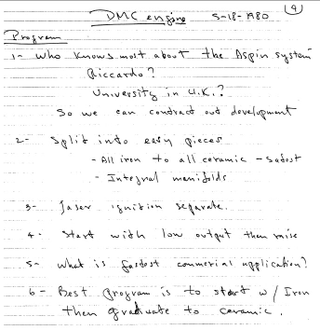 DMC engine 5-18-1980 (9)
Program
1- Who knows most about the Aspin system
Riccardo?
University in U.K.?
So we can contract out development
2- Split into easy pieces
- All iron to all ceramic -
- Integral manifolds
3- Laser ignition separate.
4- Start with low output then raise
5- What is fastest commerial application?
6- Best program is to start w/ Iron
then graduate to ceramic.